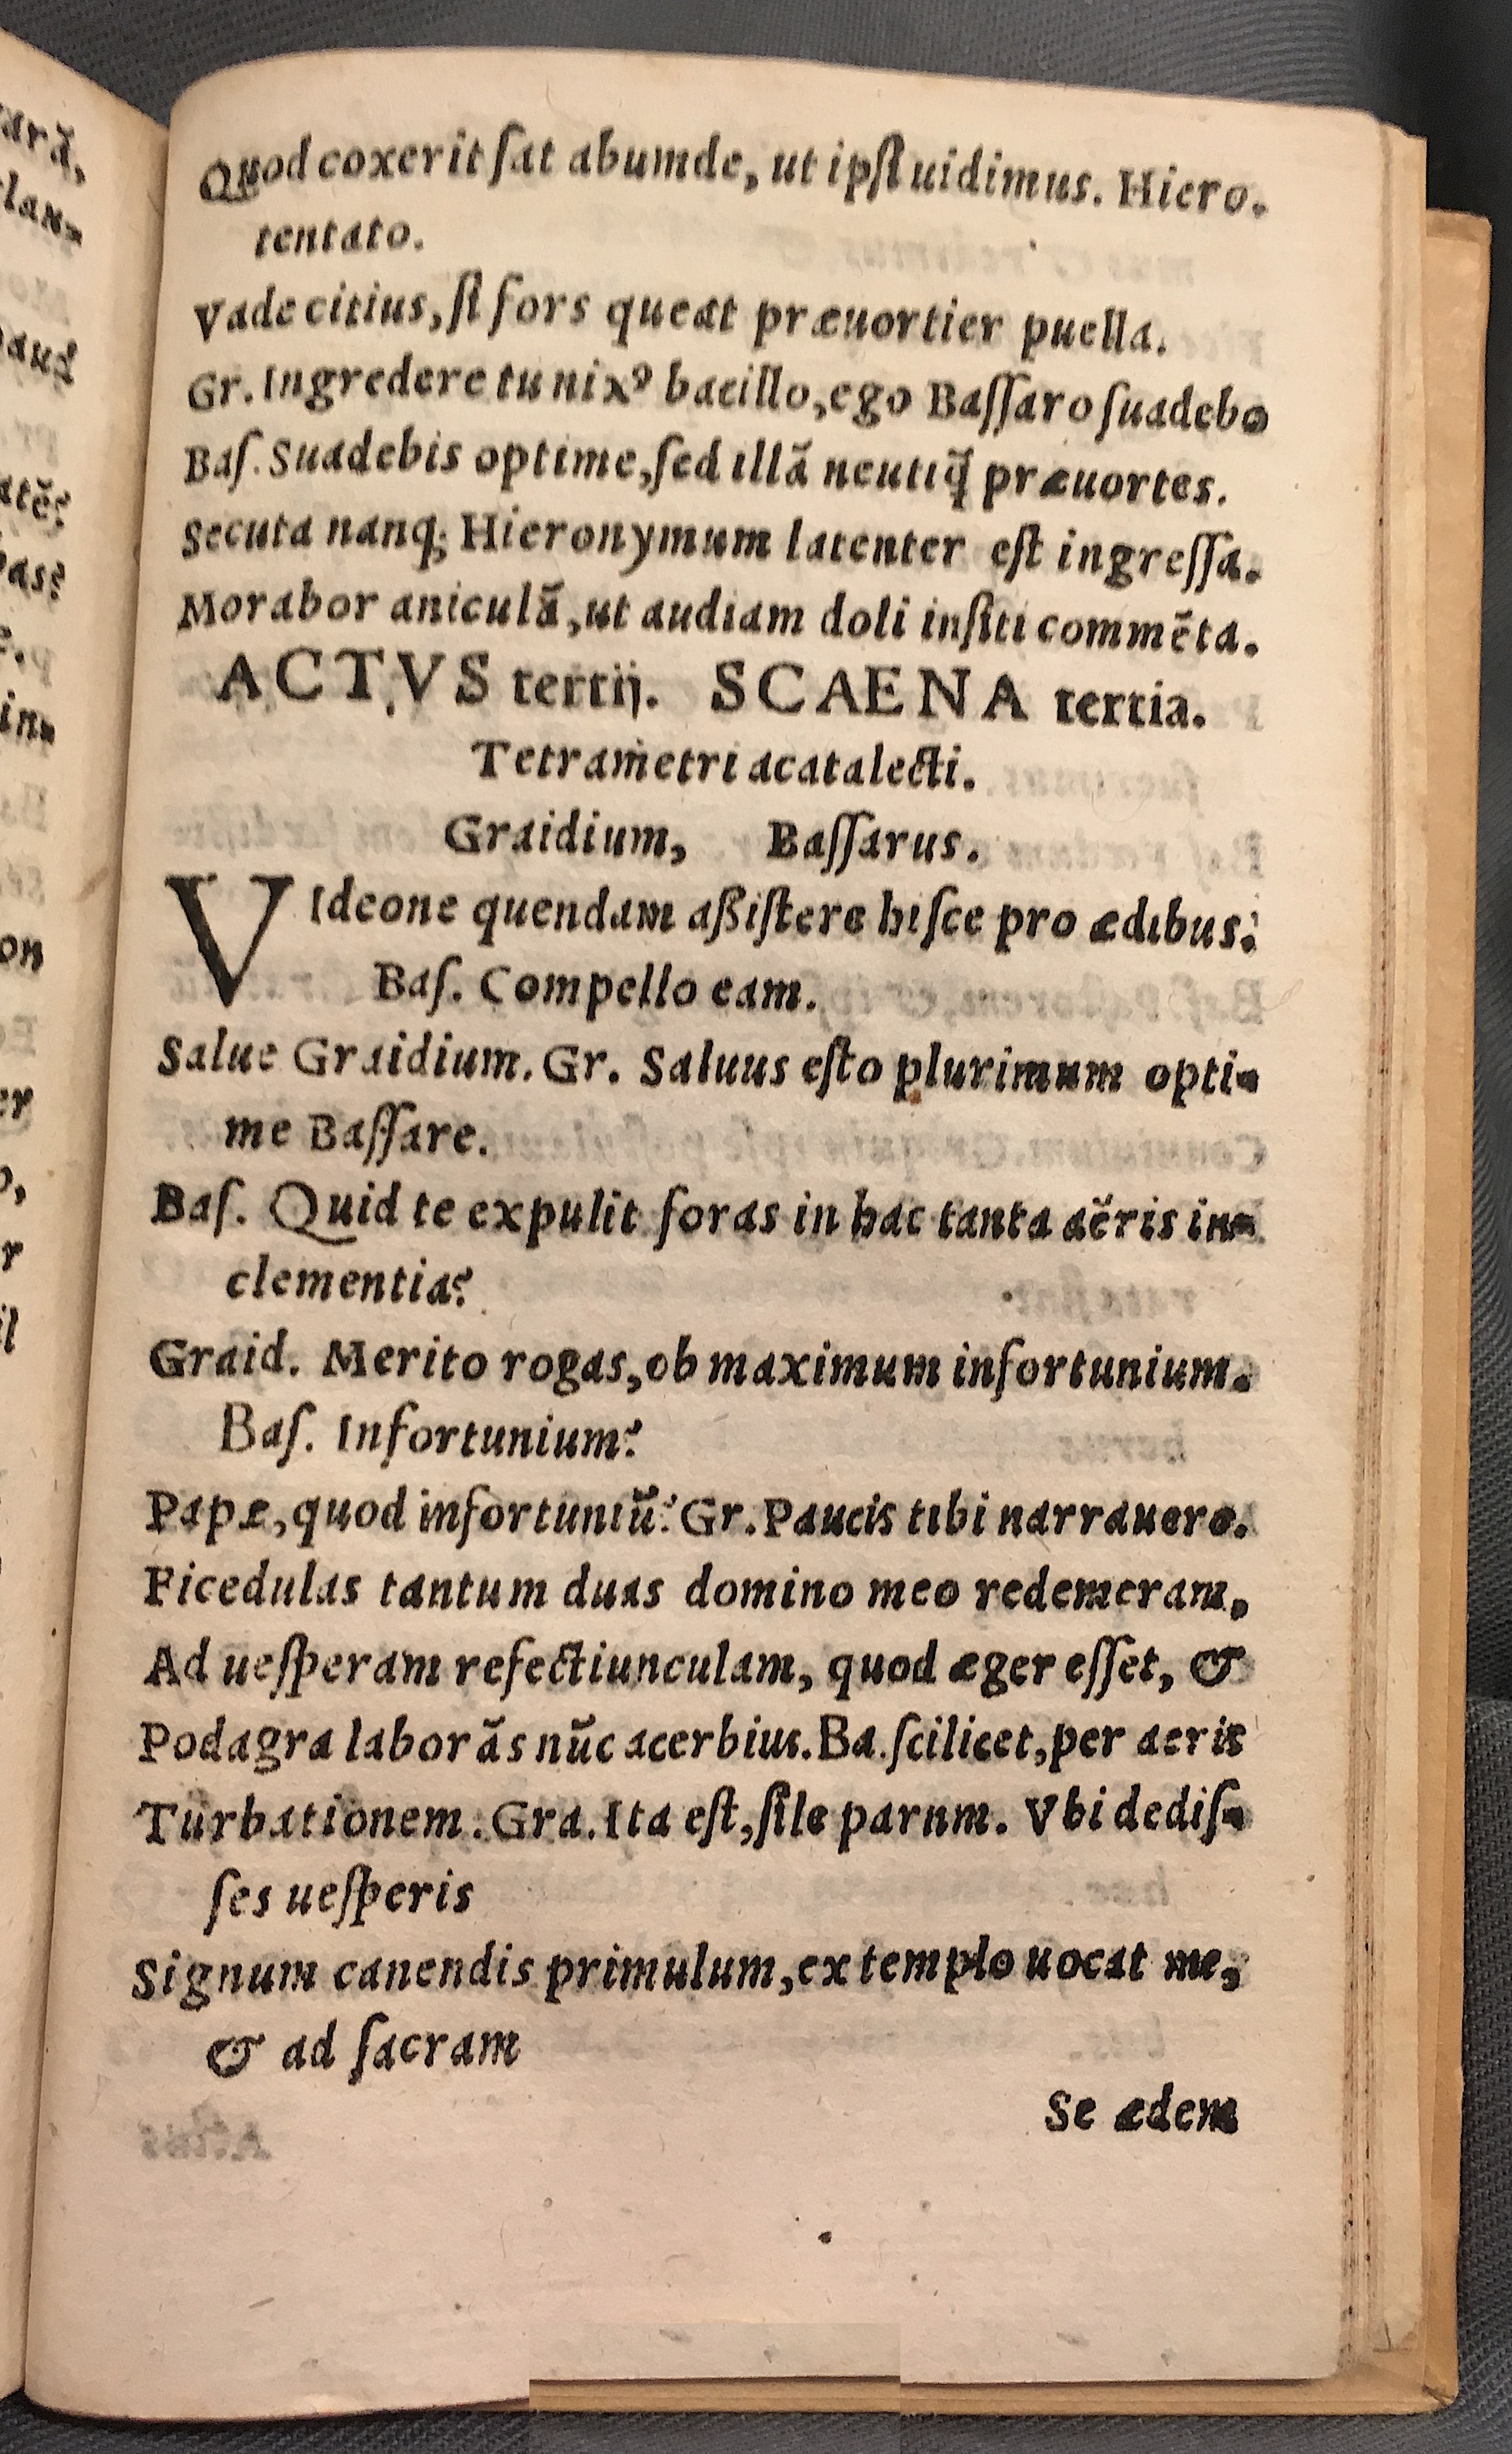 Quod coxerit ſat abumde, ut ipſi uidimus. Hiero.
tentato.
Vade citius, ſi fors queat præuortier puella.
Gr. Ingredere tu nixꝰ bacillo, ego Baſſaro ſuadebo
Baſ. Suadebis optime, ſed illã neutiq̃ præuortes.
Secuta nanq; Hieronymum latenter eſt ingreſſa.
Morabor aniculã, ut audiam doli inſiti commẽta.
ACTVS tertij. SCAENA tertia.
Tetrametri acatalecti.
Graidium, Baſſarus.
VIdeone quendam aßiſtere hiſce pro ædibus?
Baſ. Compello eam.
Salue Graidium. Gr. Saluus eſto plurimum opti-
me Baſſare.
Baſ. Quid te expulit foras in hac tanta aëris in-
clementia?
Graid. Merito rogas, ob maximum infortunium.
Baſ. Infortunium?
Papæ, quod infortuniũ? Gr. Paucis tibi narrauero.
Ficedulas tantum duas domino meo redemeram,
Ad ueſperam refectiunculam, quod æger eſſet, &
Podagra laborãs nũc acerbius. Ba. ſcilicet, per aeris
Turbationem. Gra. Ita eſt, ſile parnm. Vbi dediſ-
ſes ueſperis
Signum canendis primulum, extemplo uocat me,
& ad ſacram
Se ædem
arã,
lan-
haud
atẽ?
as?
in-
on
er
r
il